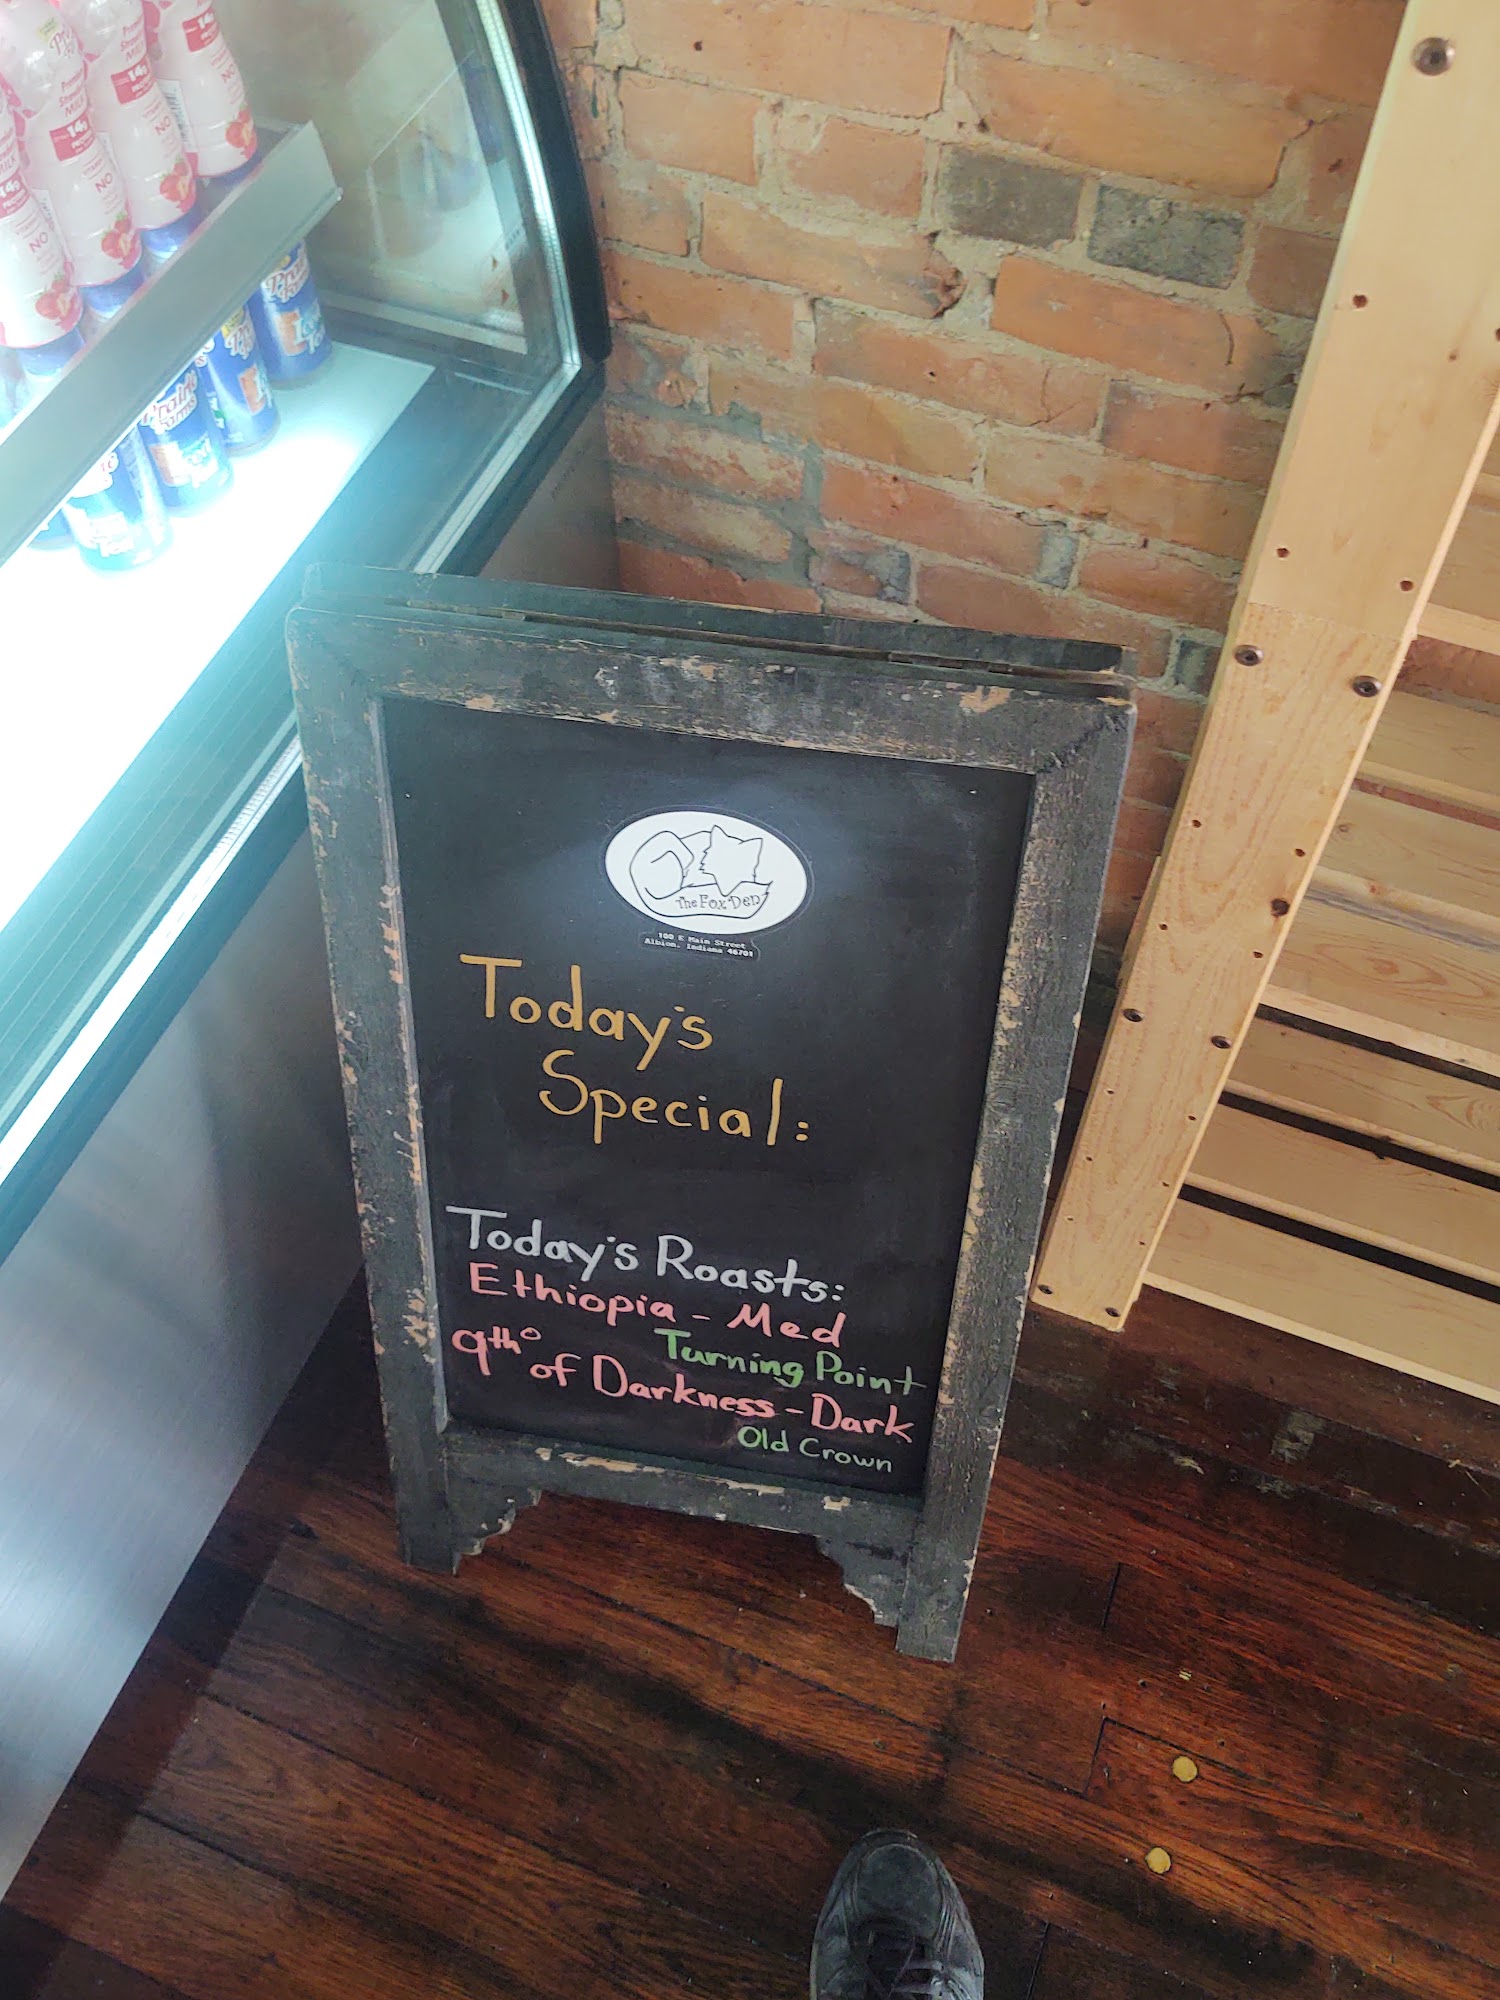 Premium
Strawberry
MILK
14g
NO
14g
NO
14g
NO
Prairie
Farms
Prairie
Farms
The Fox Den
100 E Main Street
Albion, Indiana 46701
Today's
Special:
Today's Roasts:
Ethiopia - Med
Turning Point
9th° of Darkness - Dark
Old Crown